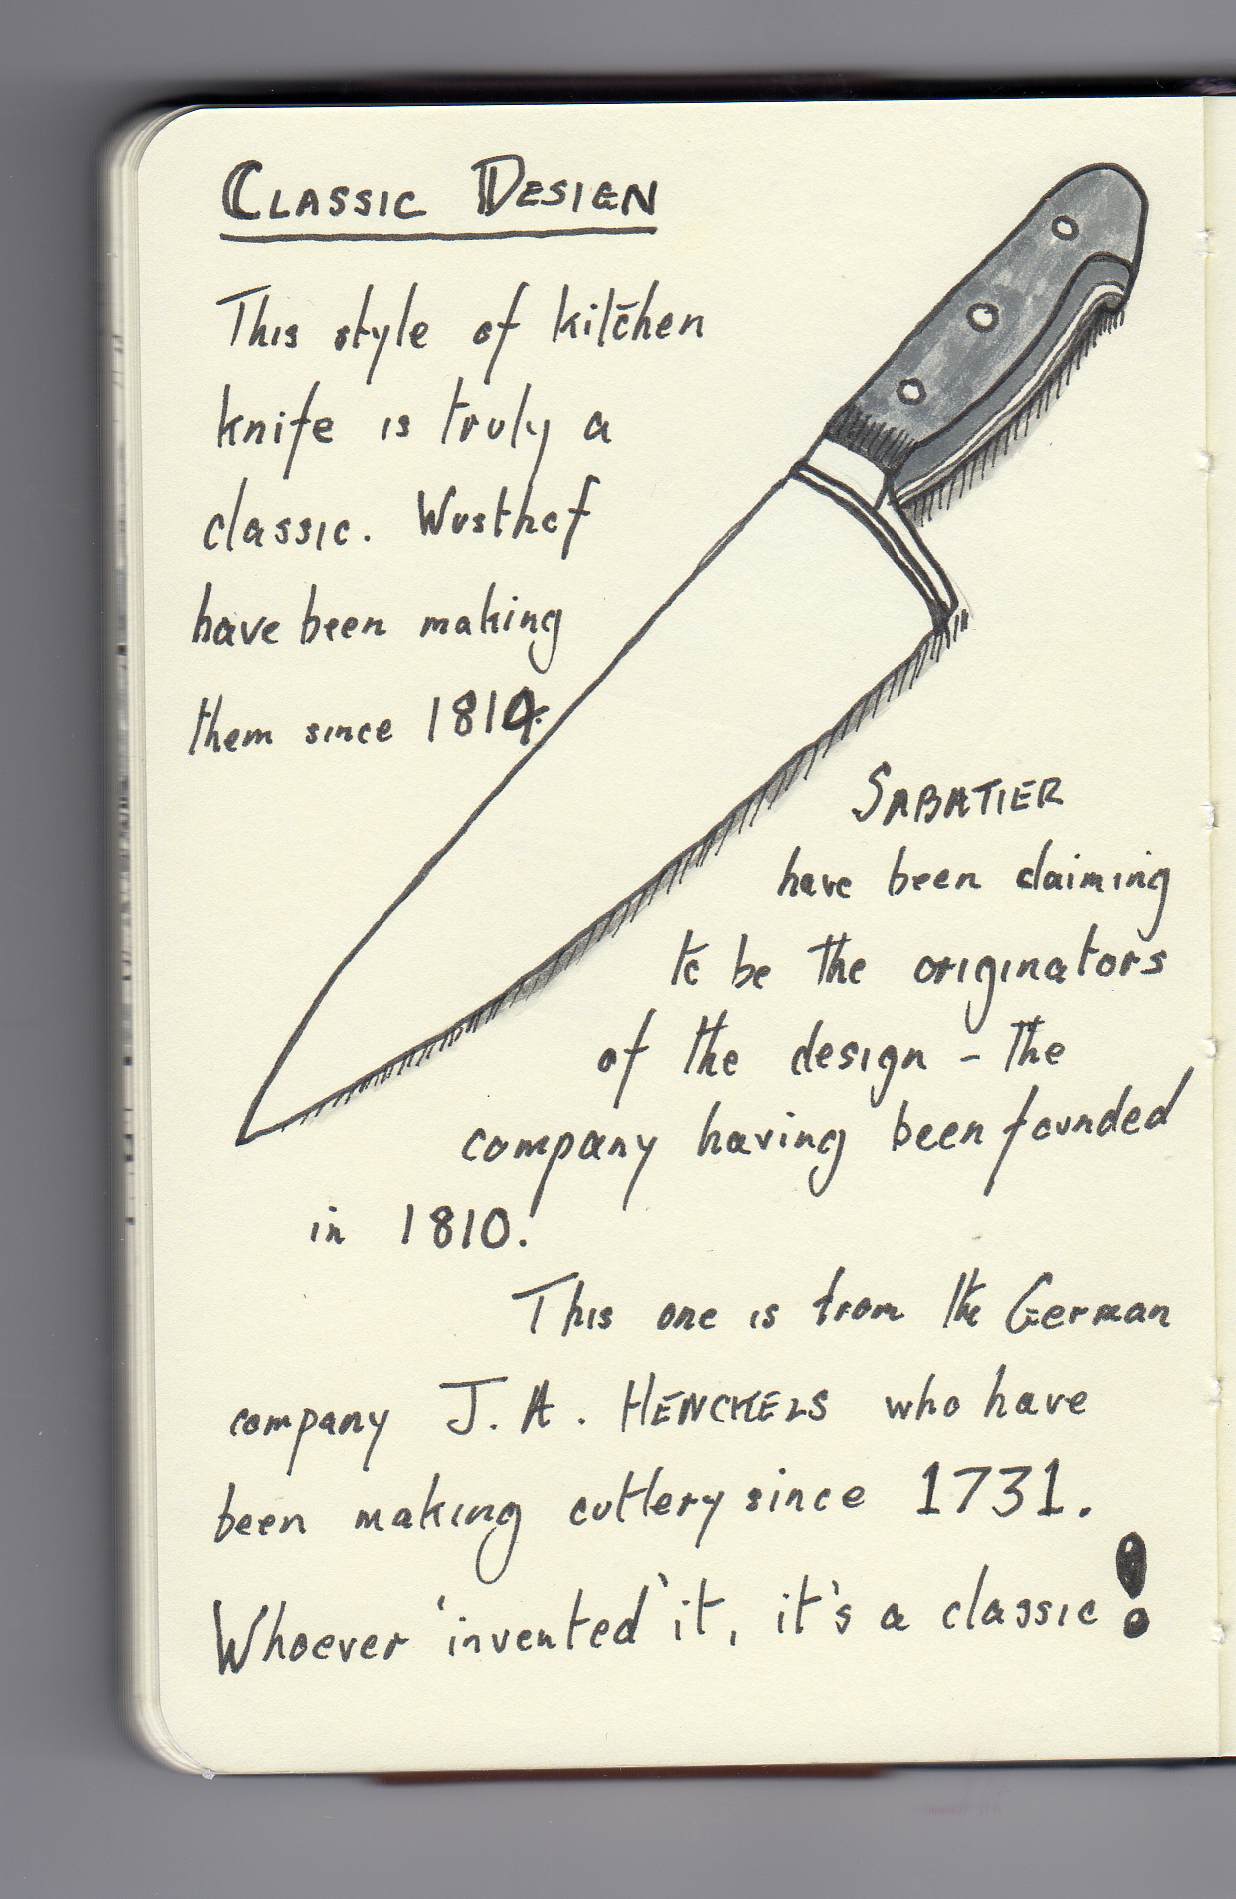 CLASSIC DESIGN
This style of kitchen
knife is truly a
classic. Wusthof
have been making
them since 1814.
SABATIER
have been claiming
to be the originators
of the design - the
company having been founded
in 1810.
This one is from the German
company J. A. HENCKELS who have
been making cutlery since 1731.
Whoever 'invented' it, it's a classic!